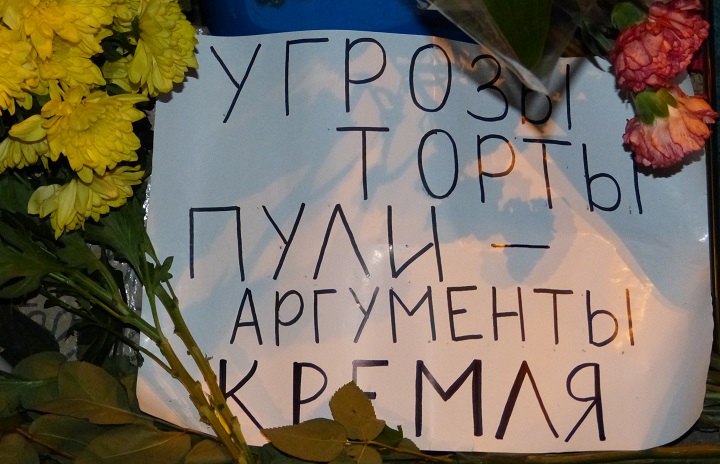 УГРОЗЫ
ТОРТЫ
ПУЛИ –
АРГУМЕНТЫ
КРЕМЛЯ